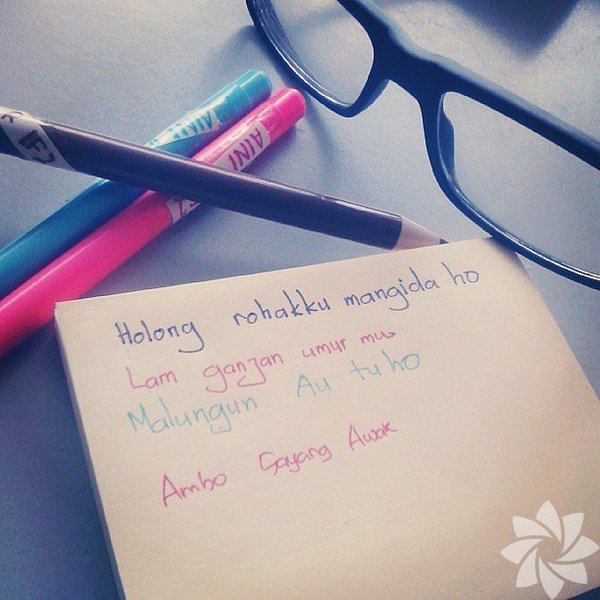 AINI
AINI
Holong rohakku mangida ho
Lam ganjan umur mu
Malungun Au tu ho
Ambo Sayang Awak